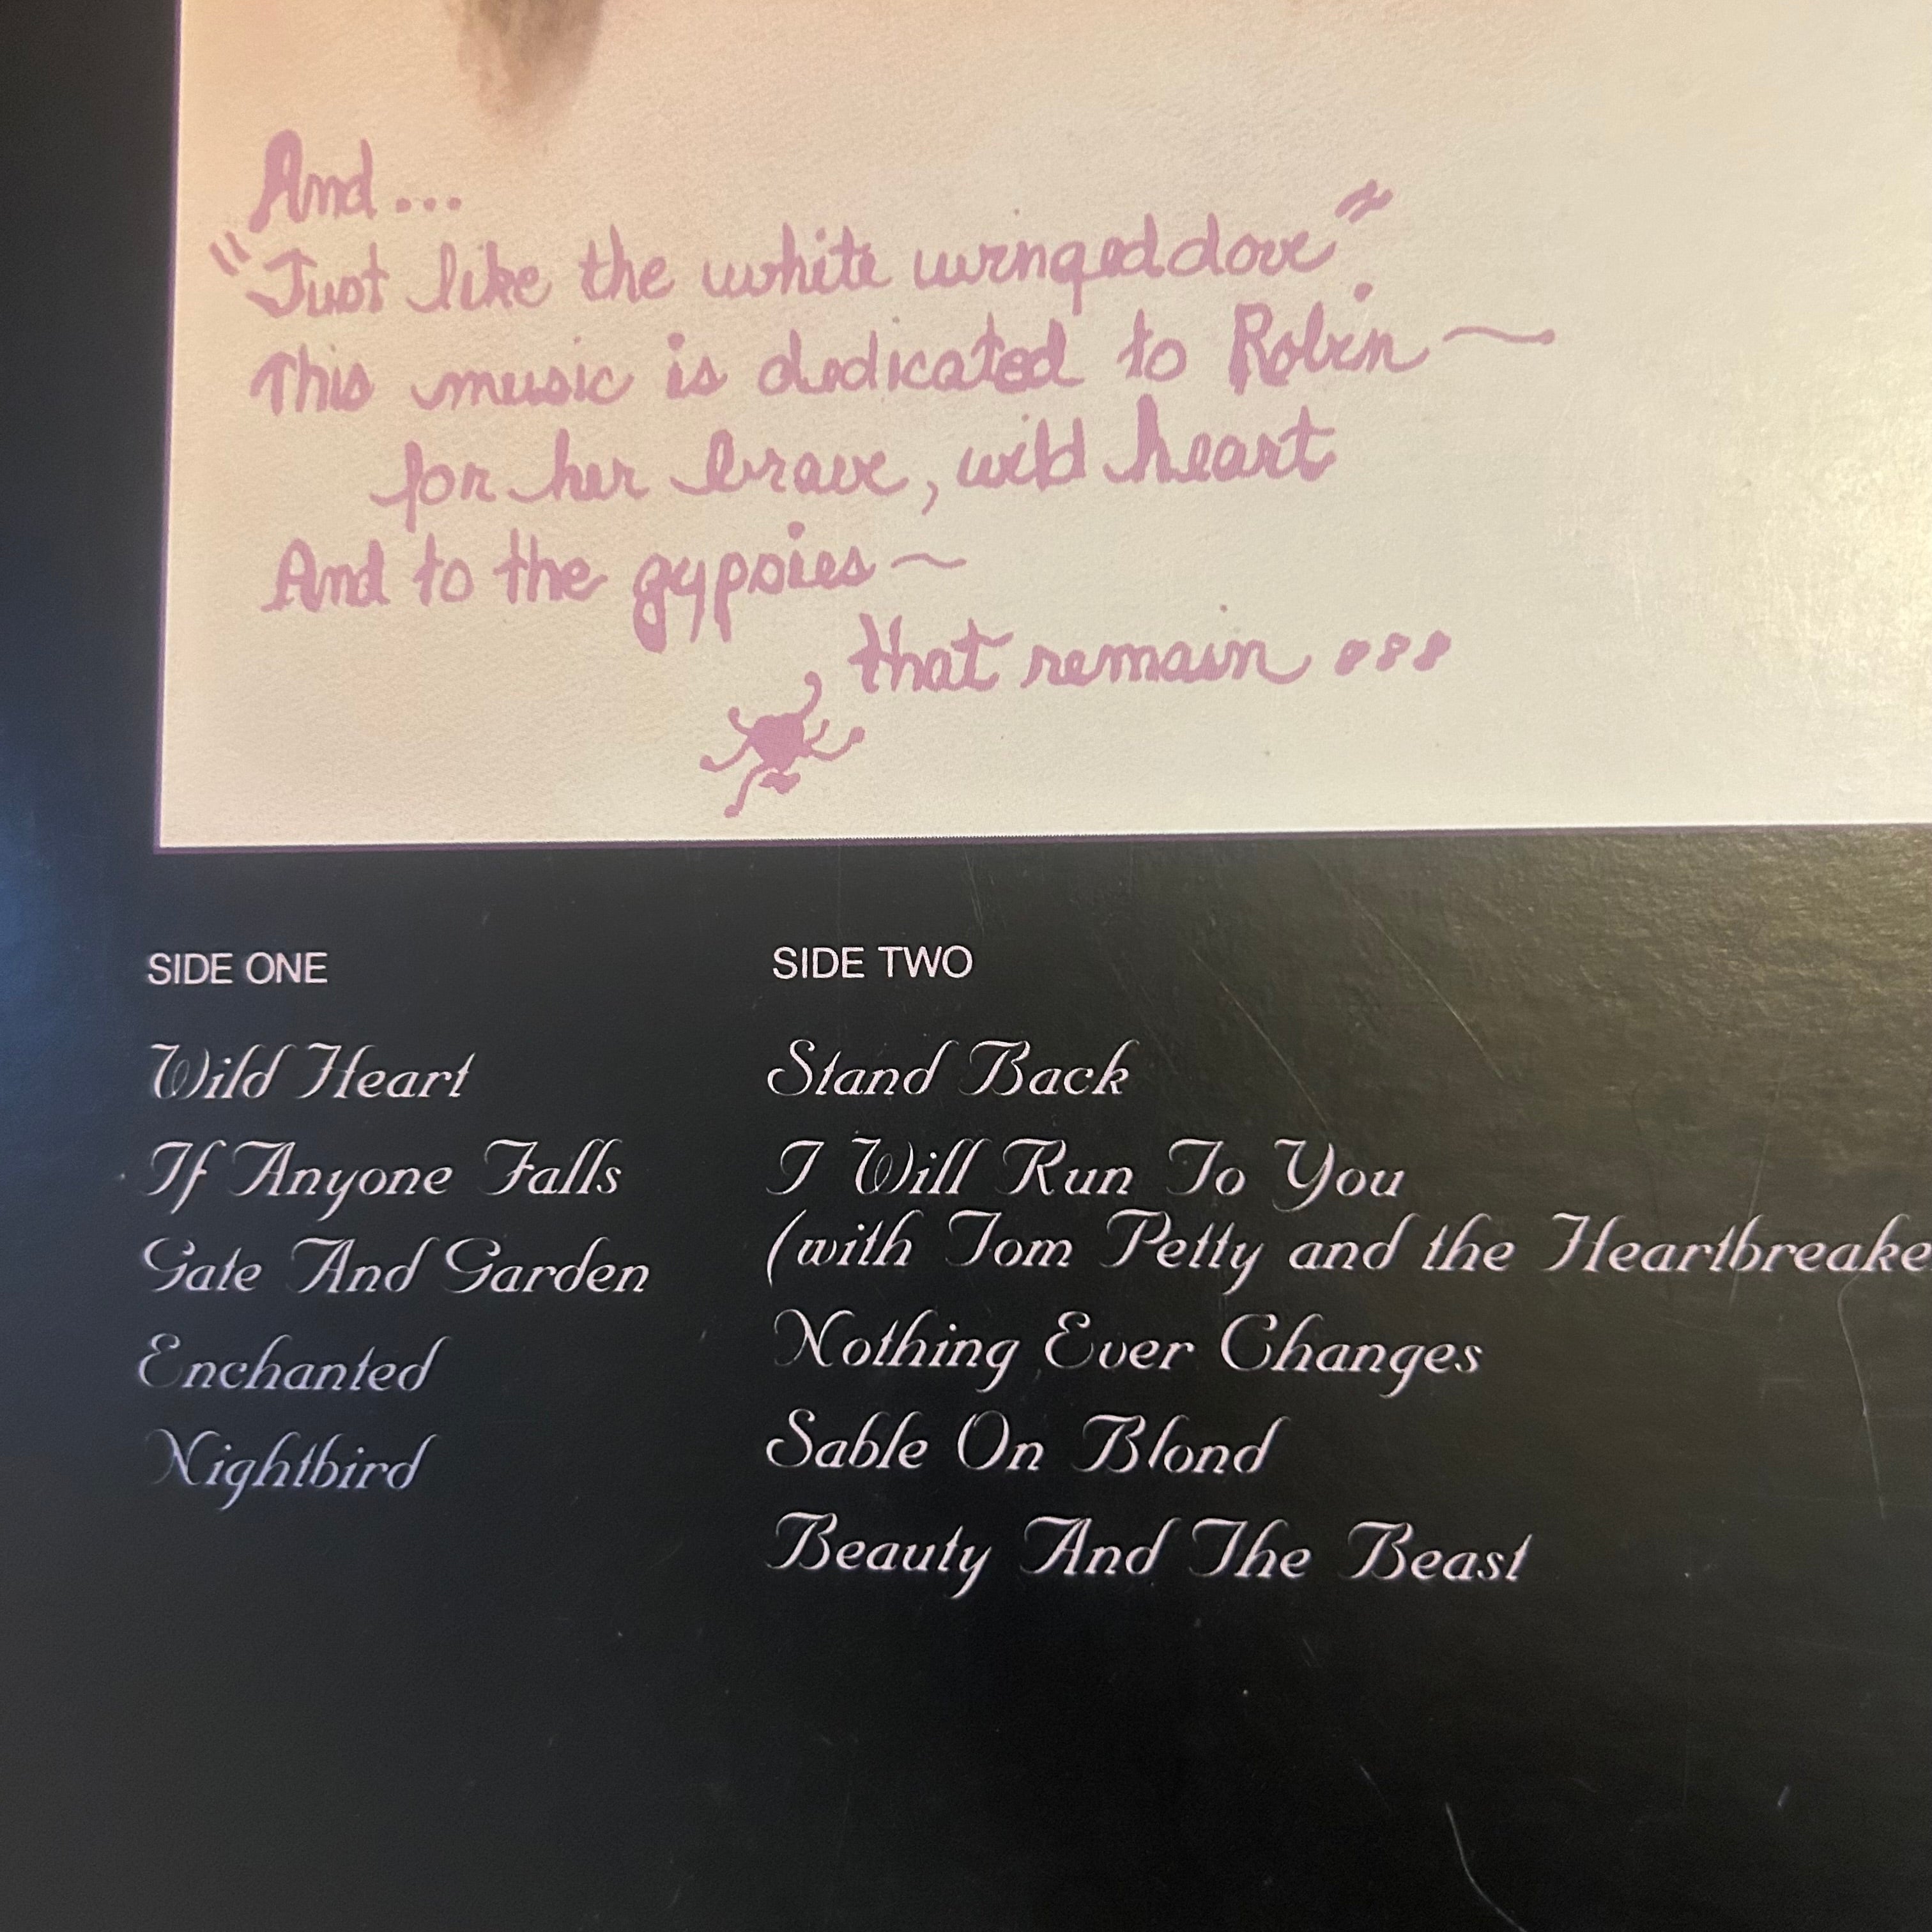 And...
"Just like the white winged dove"
This music is dedicated to Robin~
for her brave, wild heart
And to the gypsies~
that remain...
SIDE ONE
Wild Heart
If Anyone Falls
Gate And Garden
Enchanted
Nightbird
SIDE TWO
Stand Back
I Will Run To You
(with Tom Petty and the Heartbreake
Nothing Ever Changes
Sable On Blond
Beauty And The Beast